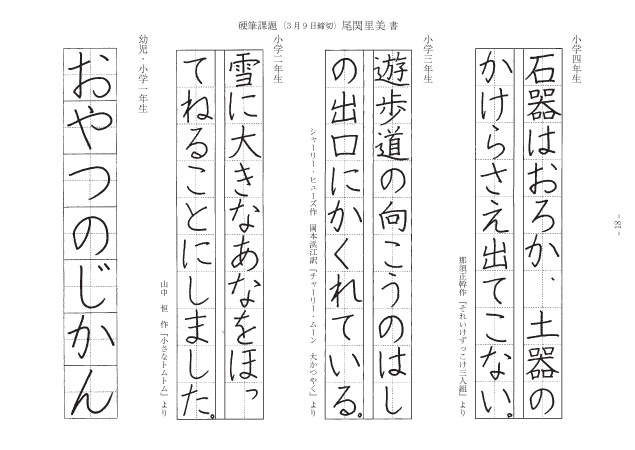 硬筆課題（3月9日締切）尾関里美 書
小学四年生
石器はおろか、土器の
かけらさえ出てこない。
那須正幹作『それいけずっこけ三人組』より
小学三年生
遊歩道の向こうのはし
の出口にかくれている。
シャーリー・ヒューズ作 岡本浜江訳『チャーリー・ムーン 大かつやく』より
小学二年生
雪に大きなあなをほっ
てねることにしました。
山中 恒 作『小さなトムトム』より
幼児・小学一年生
おやつのじかん